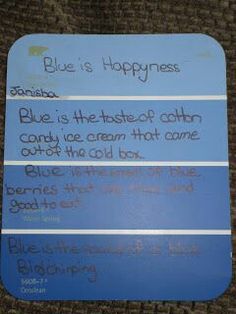 Blue is Happyness
Janisba
Blue is the taste of cotton
candy ice cream that came
out of the cold box.
Blue is the smell of blue
berries that are and
good to eat.
Blue is the sound of a blue
Bird chirping.
Cerulean